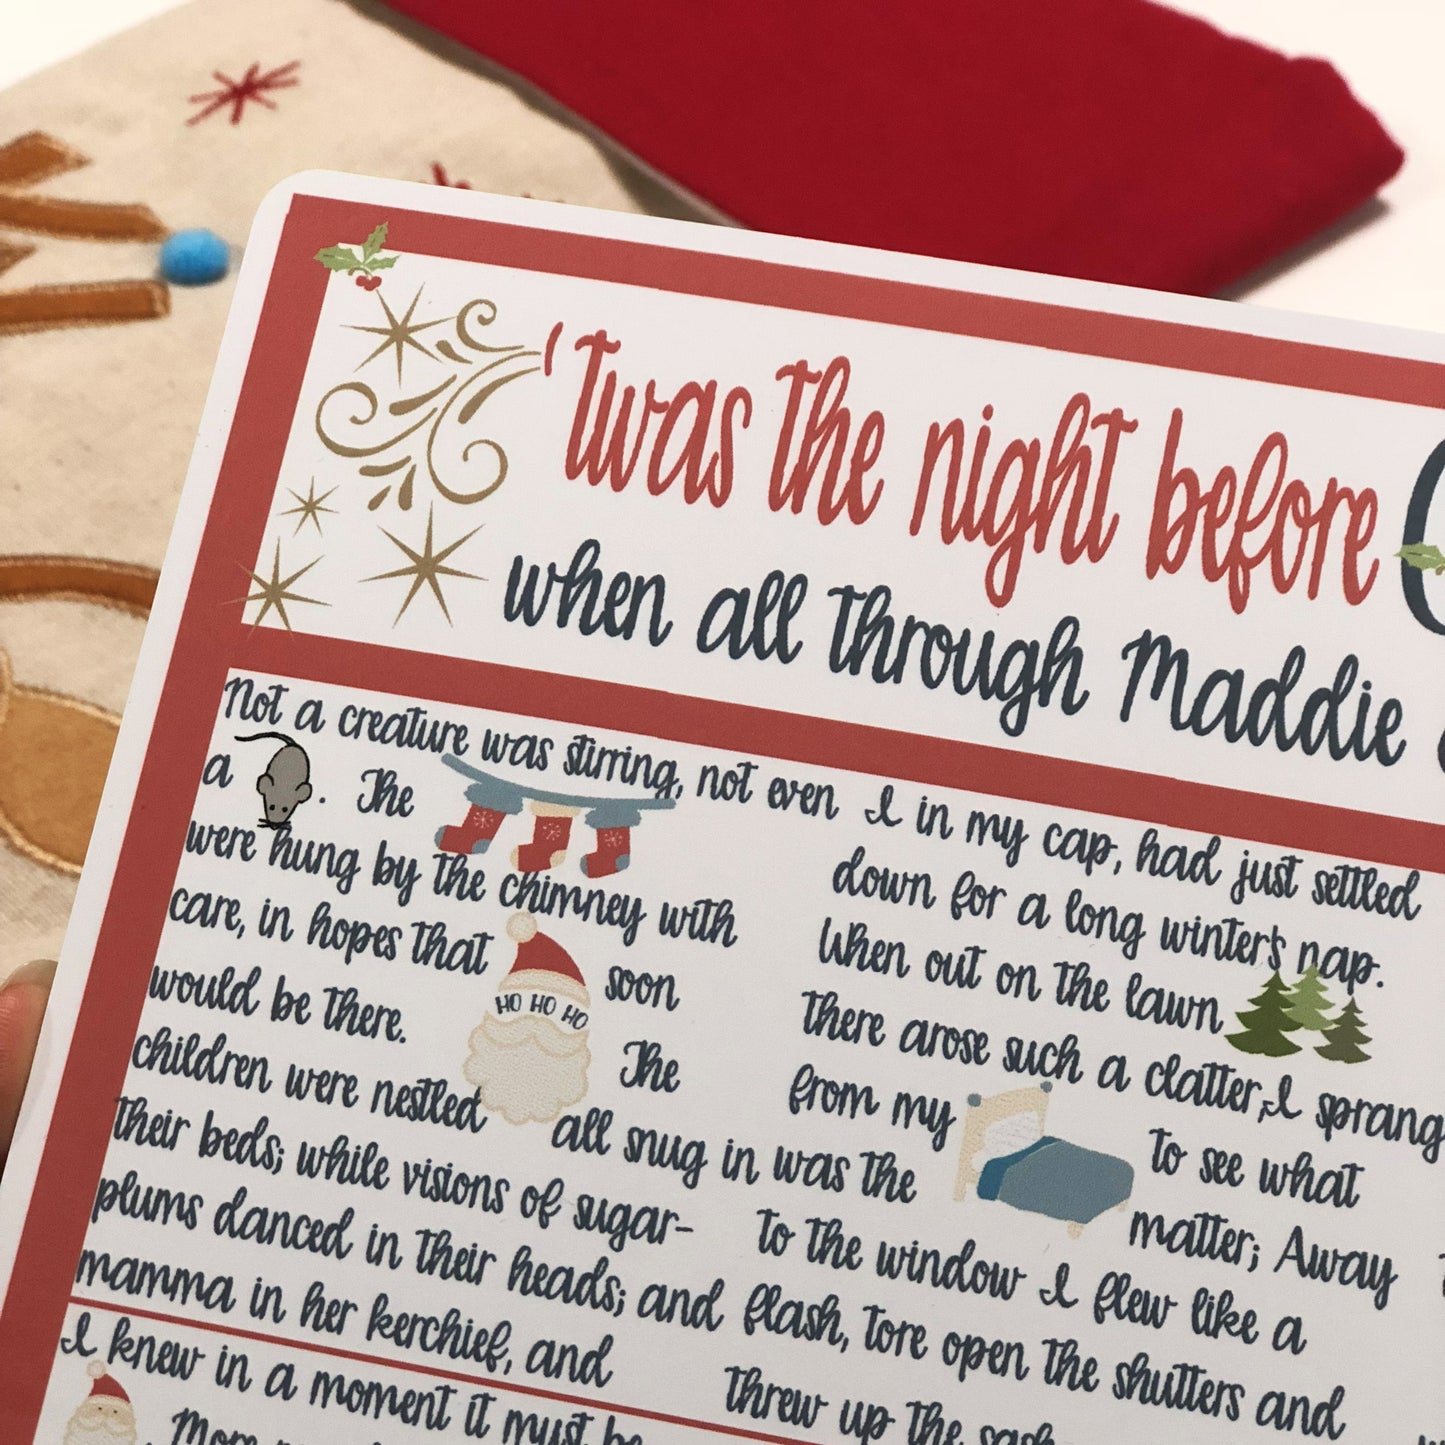 'Twas the night before
when all through Maddie
Not a creature was stirring, not even
a . The
were hung by the chimney with
care, in hopes that soon
HO HO HO
would be there. The
children were nestled all snug in
their beds; while visions of sugar-
plums danced in their heads; and
mamma in her kerchief, and
I in my cap, had just settled
down for a long winter's nap.
When out on the lawn
there arose such a clatter, I sprang
from my to see what
was the matter; Away
to the window I flew like a
flash, tore open the shutters and
threw up the sash
I knew in a moment it must be